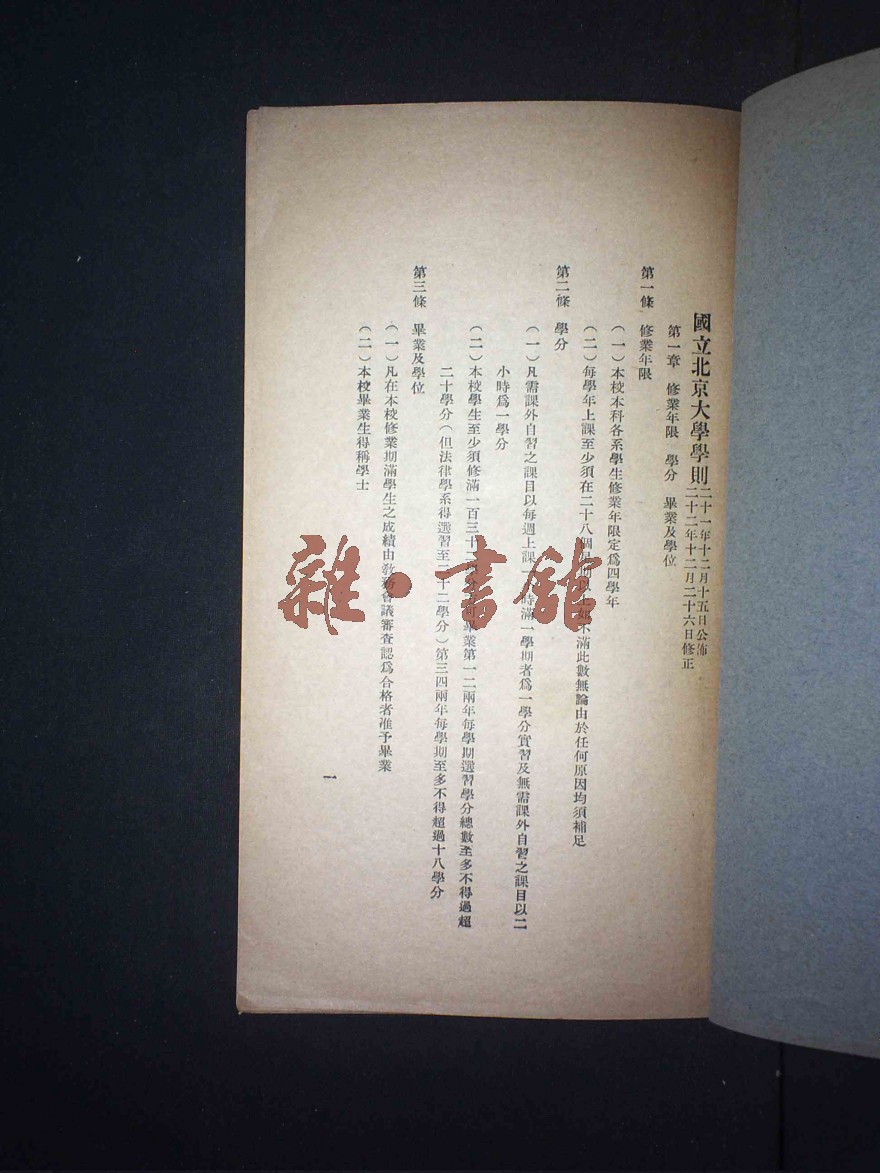 國立北京大學學則
二十一年十二月十五日公佈
二十二年十二月二十六日修正
第一章　修業年限　學分　畢業及學位
第一條　修業年限
（一）本校本科各系學生修業年限定爲四學年
（二）每學年上課至少須在二十八個星期以上如不滿此數無論由於任何原因均須補足
第二條　學分
（一）凡需課外自習之課目以每週上課一小時滿一學期者爲一學分實習及無需課外自習之課目以二
小時爲一學分
（二）本校學生至少須修滿一百三十二學分　畢業第一二兩年每學期選習學分總數至多不得過超
二十學分（但法律學系得選習至二十二學分）第三四兩年每學期至多不得超過十八學分
第三條　畢業及學位
（一）凡在本校修業期滿學生之成績由敎務會議審查認爲合格者准予畢業
（二）本校畢業生得稱學士
一
雜·書館